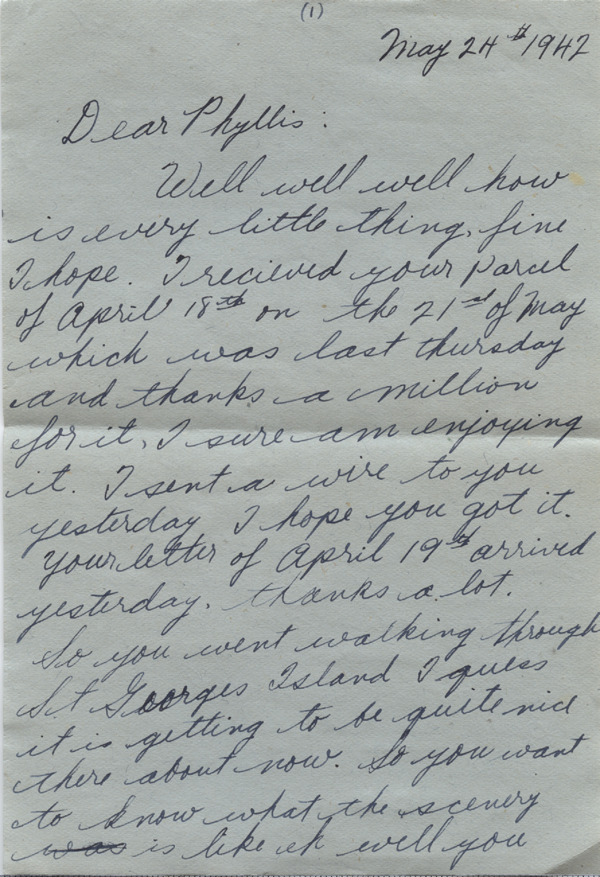 (1)
May 24th 1942
Dear Phyllis:
Well well well how
is every little thing, fine
I hope. I recieved your parcel
of April 18th on the 21st of May
which was last thursday
and thanks a million
for it, I sure am enjoying
it. I sent a wire to you
yesterday I hope you got it.
Your letter of April 19th arrived
yesterday. thanks a lot.
So you went walking through
St Georges Island I guess
it is getting to be quite nice
there about now. So you want
to know what the scenery
was is like eh well you